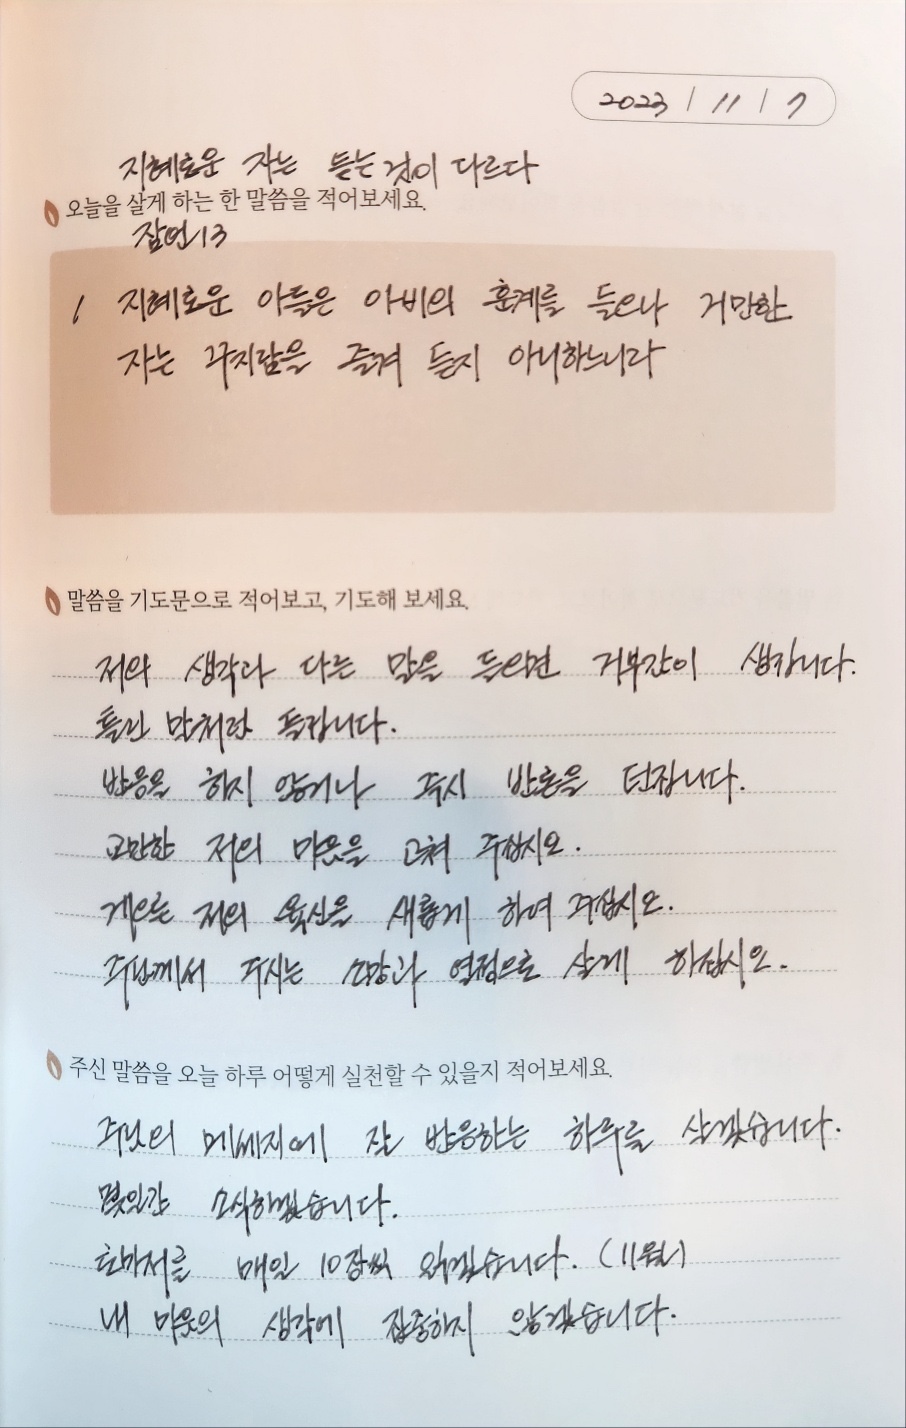 2023 / 11 / 7
지혜로운 자는 듣는 것이 다르다
오늘을 살게 하는 한 말씀을 적어보세요.
잠언 13
1 지혜로운 아들은 아비의 훈계를 들으나 거만한
자는 꾸지람을 즐겨 듣지 아니하느니라
말씀을 기도문으로 적어보고, 기도해 보세요.
저와 생각과 다른 말을 들으면 거부감이 생깁니다.
틀린 말처럼 들립니다.
반응을 하지 않거나 즉시 반론을 던집니다.
교만한 저의 마음을 고쳐 주십시오.
게으른 저의 육신을 새롭게 하여 주십시오.
주님께서 주시는 소망과 열정으로 살게 하십시오.
주신 말씀을 오늘 하루 어떻게 실천할 수 있을지 적어보세요.
주님의 메세지에 잘 반응하는 하루를 살겠습니다.
몇일간 소식하겠습니다.
로마서를 매일 10장씩 읽겠습니다. (11월)
내 마음의 생각에 집중하지 않겠습니다.